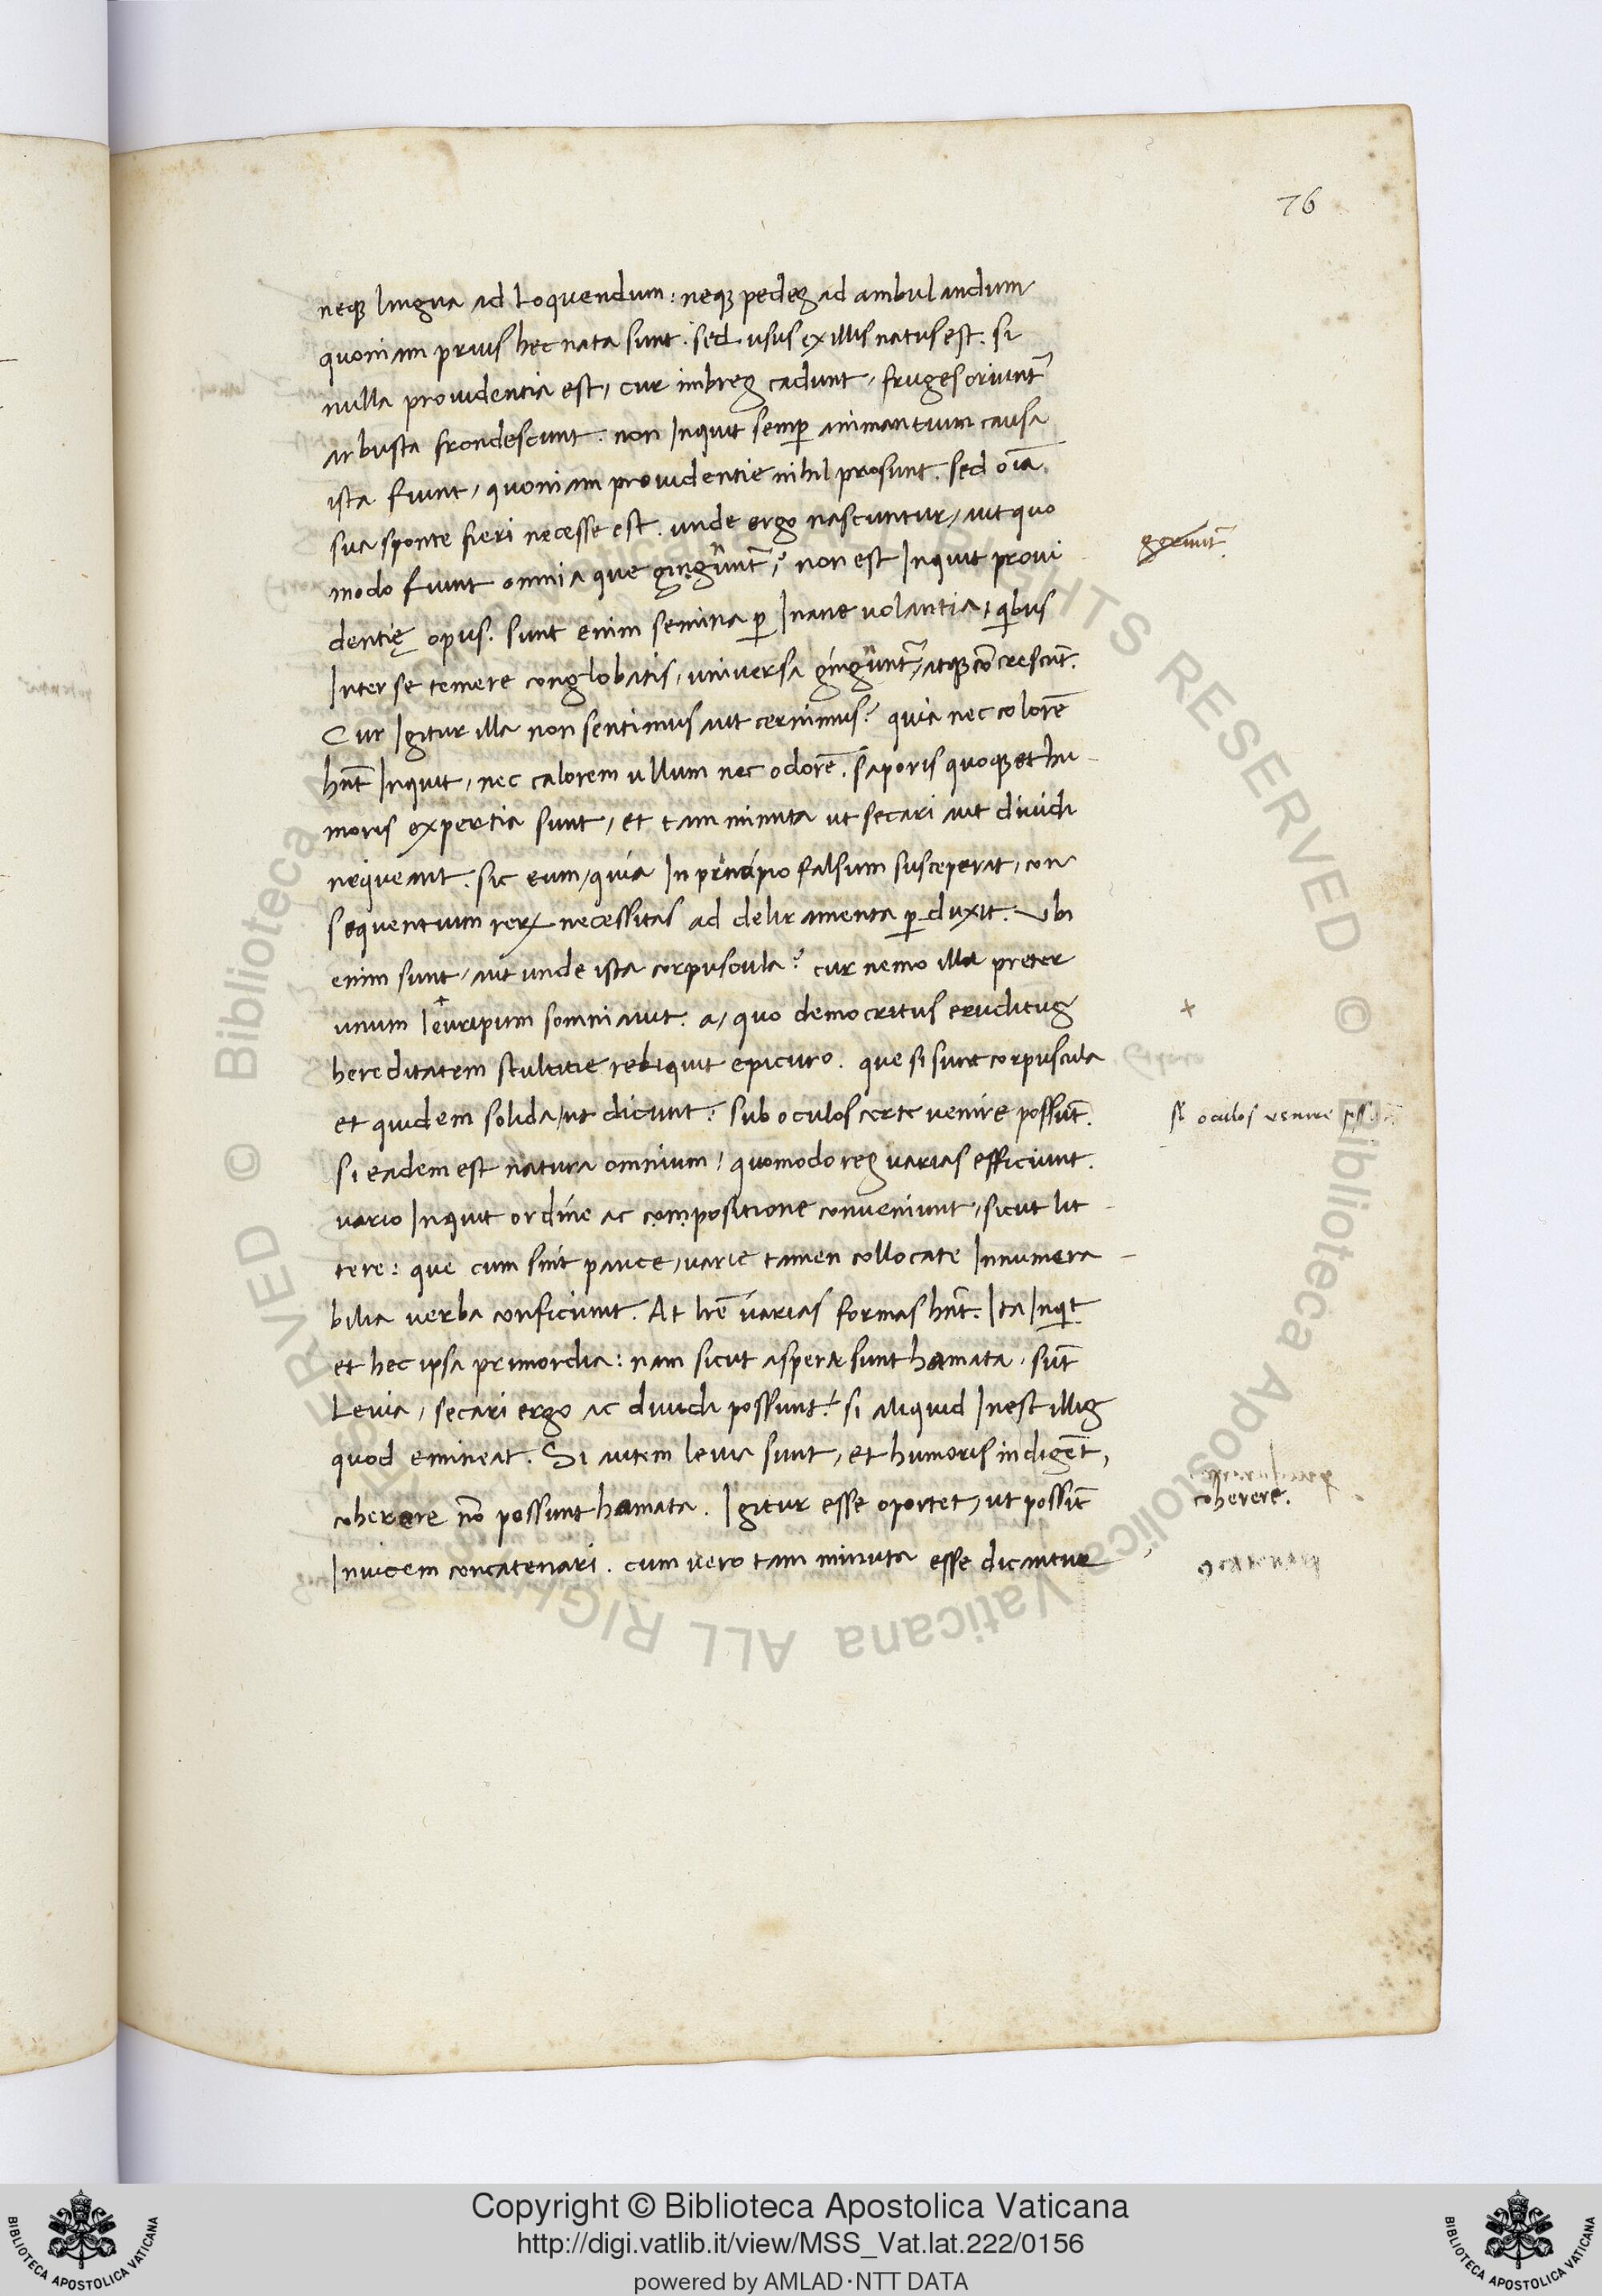 76
neqꝫ lingua ad loquendum: neqꝫ pedes ad ambulandum
quoniam prius hec nata sunt. sed usus ex illis natus est. si
nulla prouidentia est, cur imbres cadunt, fruges oriunt᷑
arbusta frondescunt. non Inquit semꝑ animantium causa
ista fiunt, quoniam prouidentie nihil prosunt. sed oĩa
sua sponte fieri necesse est. unde ergo nascuntur, aut quo
modo fiunt omnia que gignunt᷑? non est Inquit proui
dentię opus. sunt enim semina ꝑ Inane uolantia, qibus
Inter se temere conglobatis, uniuersa gignunt᷑, atqꝫ cõcrescũt.
Cur Igitur illa non sentimus aut cernimus? quia nec colorẽ
hñt Inquit, nec calorem ullum nec odorẽ. saporis quoqꝫ et hu-
moris expertia sunt, et tam minuta ut secari aut diuidi
nequeant. sic eum, quia In principio falsum susceperat, con
sequentium rerꝝ necessitas ad deliramenta ꝑduxit. Ubi
enim sunt, aut unde ista corpuscula? cur nemo illa preter
unum leuripum somniauit. a, quo democritus eruditus
hereditatem stultitie reliquit epicuro. que si sunt corpuscula
et quidem solida, ut dicunt: sub oculos certe uenire possũt.
si eadem est natura omnium, quomodo res uarias efficiunt.
uario Inquit ordine ac compositione conueniunt, sicut lit-
tere: que cum sint pauce, uarie tamen collocate Innumera-
bilia uerba conficiunt. At lrẽ uarias formas hñt. Ita Inqit
et hec ipsa primordia: nam sicut aspera sunt hamata, sũt
Leuia, secari ergo ac diuidi possunt. si aliquid Inest illis
quod emineat. Si autem leuia sunt, et humoris indigẽt,
coherere nõ possunt hamata. Igitur esse oportet, ut possĩt
Inuicem concatenari. cum uero tam minuta esse dicantur
geruñt.
+
si oculos uenire
coherere.
Copyright © Biblioteca Apostolica Vaticana
http://digi.vatlib.it/view/MSS_Vat.lat.222/0156
powered by AMLAD·NTT DATA
BIBLIOTECA APOSTOLICA VATICANA
BIBLIOTECA APOSTOLICA VATICANA
© Biblioteca Apostolica Vaticana ALL RIGHTS RESERVED © Biblioteca Apostolica Vaticana ALL RIGHTS RESERVED